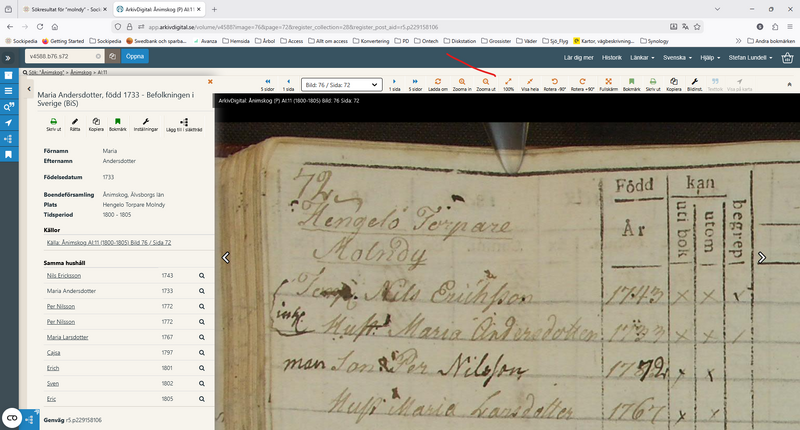 Sökresultat för "molndy" - Socki
ArkivDigital: Ånimskog (P) AI:11
app.arkivdigital.se/volume/v4588?image=76&page=72&register_collection=28&register_post_aid=r5.p229158106
Sockipedia Getting Started Sockipedia Swedbank och sparba... Avanza Hemsida Årbol Access Allt om access Konvertering PD Ontech Diskstation Grossister Väder Sjö_Flyg Kartor, vägbeskrivning... Synology Andra bokmärken
v4588.b76.s72 Öppna Lär dig mer Historik Länkar Svenska Hjälp Stefan Lundell
Sök: "Ånimskog" > Ånimskog > AI:11
5 sidor 1 sida Bild: 76 / Sida: 72 1 sida 5 sidor Ladda om Zooma in Zooma ut 100% Visa hela Rotera -90° Rotera +90° Fullskärm Bokmärk Skriv ut Kopiera Bildinst. Textbrott Visa på karta
Maria Andersdotter, född 1733 - Befolkningen i
Sverige (BiS)
Skriv ut Rätta Kopiera Bokmärk Inställningar Lägg till i släktträd
Förnamn Maria
Efternamn Andersdotter
Födelsedatum 1733
Boendeförsamling Ånimskog, Älvsborgs län
Plats Hengelo Torpare Molndy
Tidsperiod 1800 - 1805
Källor
Källa: Ånimskog AI:11 (1800-1805) Bild 76 / Sida 72
Samma hushåll
Nils Ericksson 1743
Maria Andersdotter 1733
Per Nilsson 1772
Per Nilsson 1772
Maria Larsdotter 1767
Caisa 1797
Erich 1801
Sven 1802
Eric 1805
Genväg r5.p229158106
ArkivDigital: Ånimskog (P) AI:11 (1800-1805) Bild: 76 Sida: 72
72
Född År
kan
uti bok
utom
begrep
Hengelo Torpare
Molndy
Nils Erichsson 1743 x x
inh. Hust. Maria Andersdotter 1733 x x
man Son Per Nilsson 1772 x x
Hust Maria Larsdotter 1767 x x